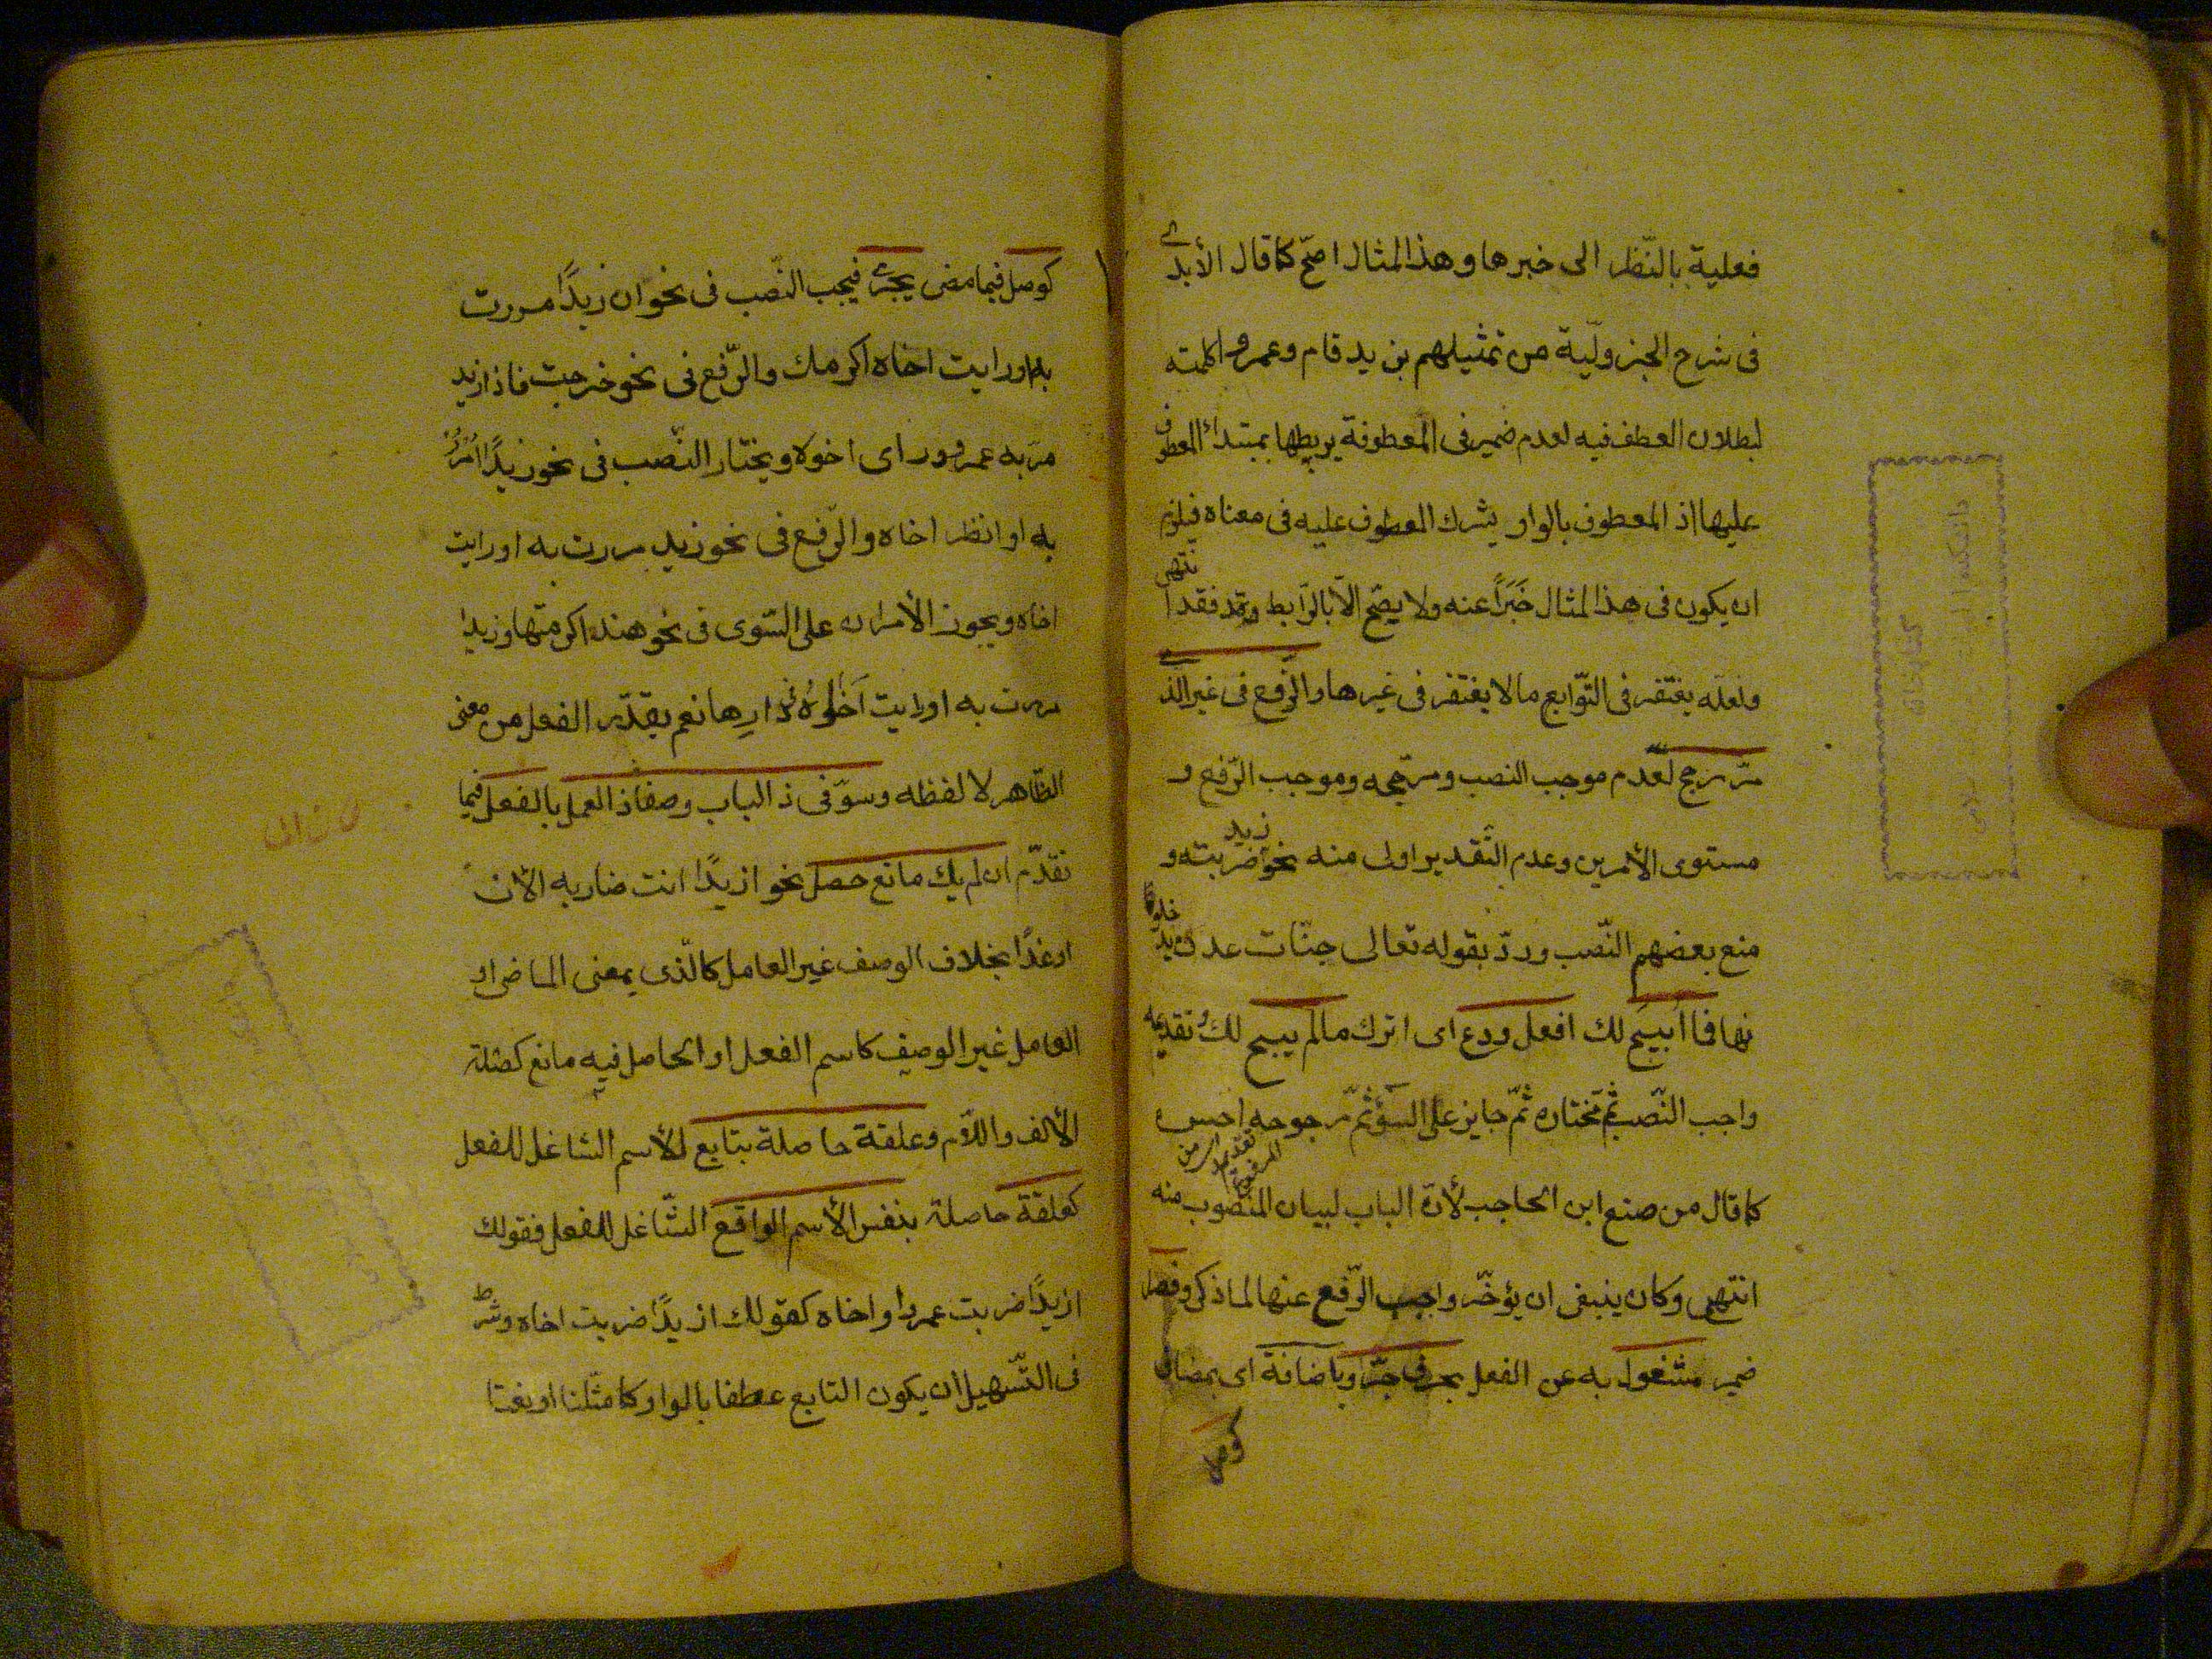 فعلية بالنّظر الى خبرها وهذا المثال اصحّ كما قال الأبدى
فى شرح الجزوليّة من تمثيلهم بزيد قام وعمرو اكلمته
لبطلان العطف فيه لعدم ضمير فى المعطوفة يربطها بمبتداء المعطوف
عليها اذ المعطوف بالواو يشرك المعطوف عليه فى معناه فيلزم
ان يكون فى هذا المثال خَبَرًا عنه ولا يصّح الّا بالرّابط وقد فقد انتهى
ولعلّه يغتفر فى التّوابع ما لا يغتفر فى غيرها والرّفع فى غير الذى
مرّ رجح لعدم موجب النصب ومرّجحه وموجب الرّفع و
مستوى الأمرين وعدم التّقدير اولى منه نحو زيد ضربته و
منع بعضهم النّصب وردّ بقوله تعالى جنّات عدن يدخلو
نها فما اُبيحَ لك افعل ودع اى اترك ما لم يبح لك وتقديمه
واجب النّصب ثمّ مختاره ثمّ جايز على السّوٓ ثمّ مرجوحه احسن
كما قال من صنع ابن الحاجب لأنّ الباب لبيان المنصوب منه
انتهى وكان ينبغى ان يؤخّر واجب الرّفع عنها لما ذكر وفصل
ضمير مشغول به عن الفعل بحرف جرّ او باضافة اى بمضاف
كوصل
كوصل فيما مضى يجرى فيجب النّصب فى نحو ان زيدًا مررت
به او رايت اخاه اكرمك والرّفع فى نحو خرجت فاذا زيد
مرّ به عمرو وراى اخوه ويختار النّصب فى نحو زيدًا اُمْرُرْ
به او انظر اخاه والرّفع فى نحو زيد مررت به او رايت
اخاه ويجوز الأمران على السّوى فى نحو هند اكرمتها وزيدا
مررت به او رايت اخاه فى دارها نعم يقدّر الفعل من معنى
الظّاهر لا لفظه وسوّ فى ذ الباب وصفا ذا العمل بالفعل فيما
تقدّم ان لم يك مانع حصل نحو ازيدًا انت ضاربه الآن
او غدًا بخلاف الوصف غير العامل كالّذى بمعنى الماضى او
العامل غير الوصف كاسم الفعل او الحاصل فيه مانع كصلة
الألف واللّام وعلقة حاصلة بتابع للأسم الشاغل للفعل
كعلقة حاصلة بنفس الأسم الواقع الشّاغل للفعل فقولك
ازيدًا ضربت عمرا واخاه كقولك ازيدًا ضربت اخاه وشرط
فى التّسهيل ان يكون التابع عطفا بالواو كما مثّلنا او نعتا